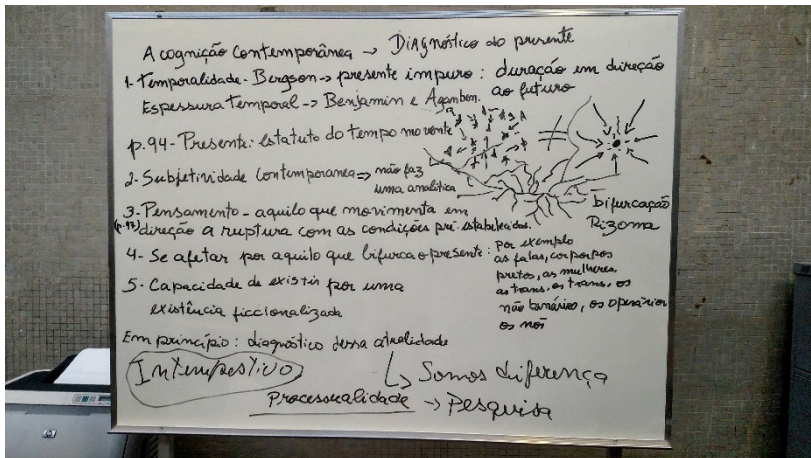 A cognição Contemporânea → Diagnóstico do presente
1- Temporalidade - Bergson → presente impuro : duração em direção
ao futuro
Espessura Temporal → Benjamin e Agamben.
p.94 - Presente: estatuto do tempo movente
2- Subjetividade Contemporanea ⇒ não faz
uma analítica
bifurcação
Rizoma
3- Pensamento - aquilo que movimenta em
direção a ruptura com as condições pré-estabelecidas.
4- Se afetar por aquilo que bifurca o presente : por exemplo
as falas, corporpos
pretos, as mulheres,
as trans, os trans, os
não binário, os operários
os nós
5- Capacidade de existir por uma
existência ficcionalizada
Em princípio : diagnóstico dessa atualidade
Intempestivo
↳ Somos diferença
Processualidade → Pesquisa
hp